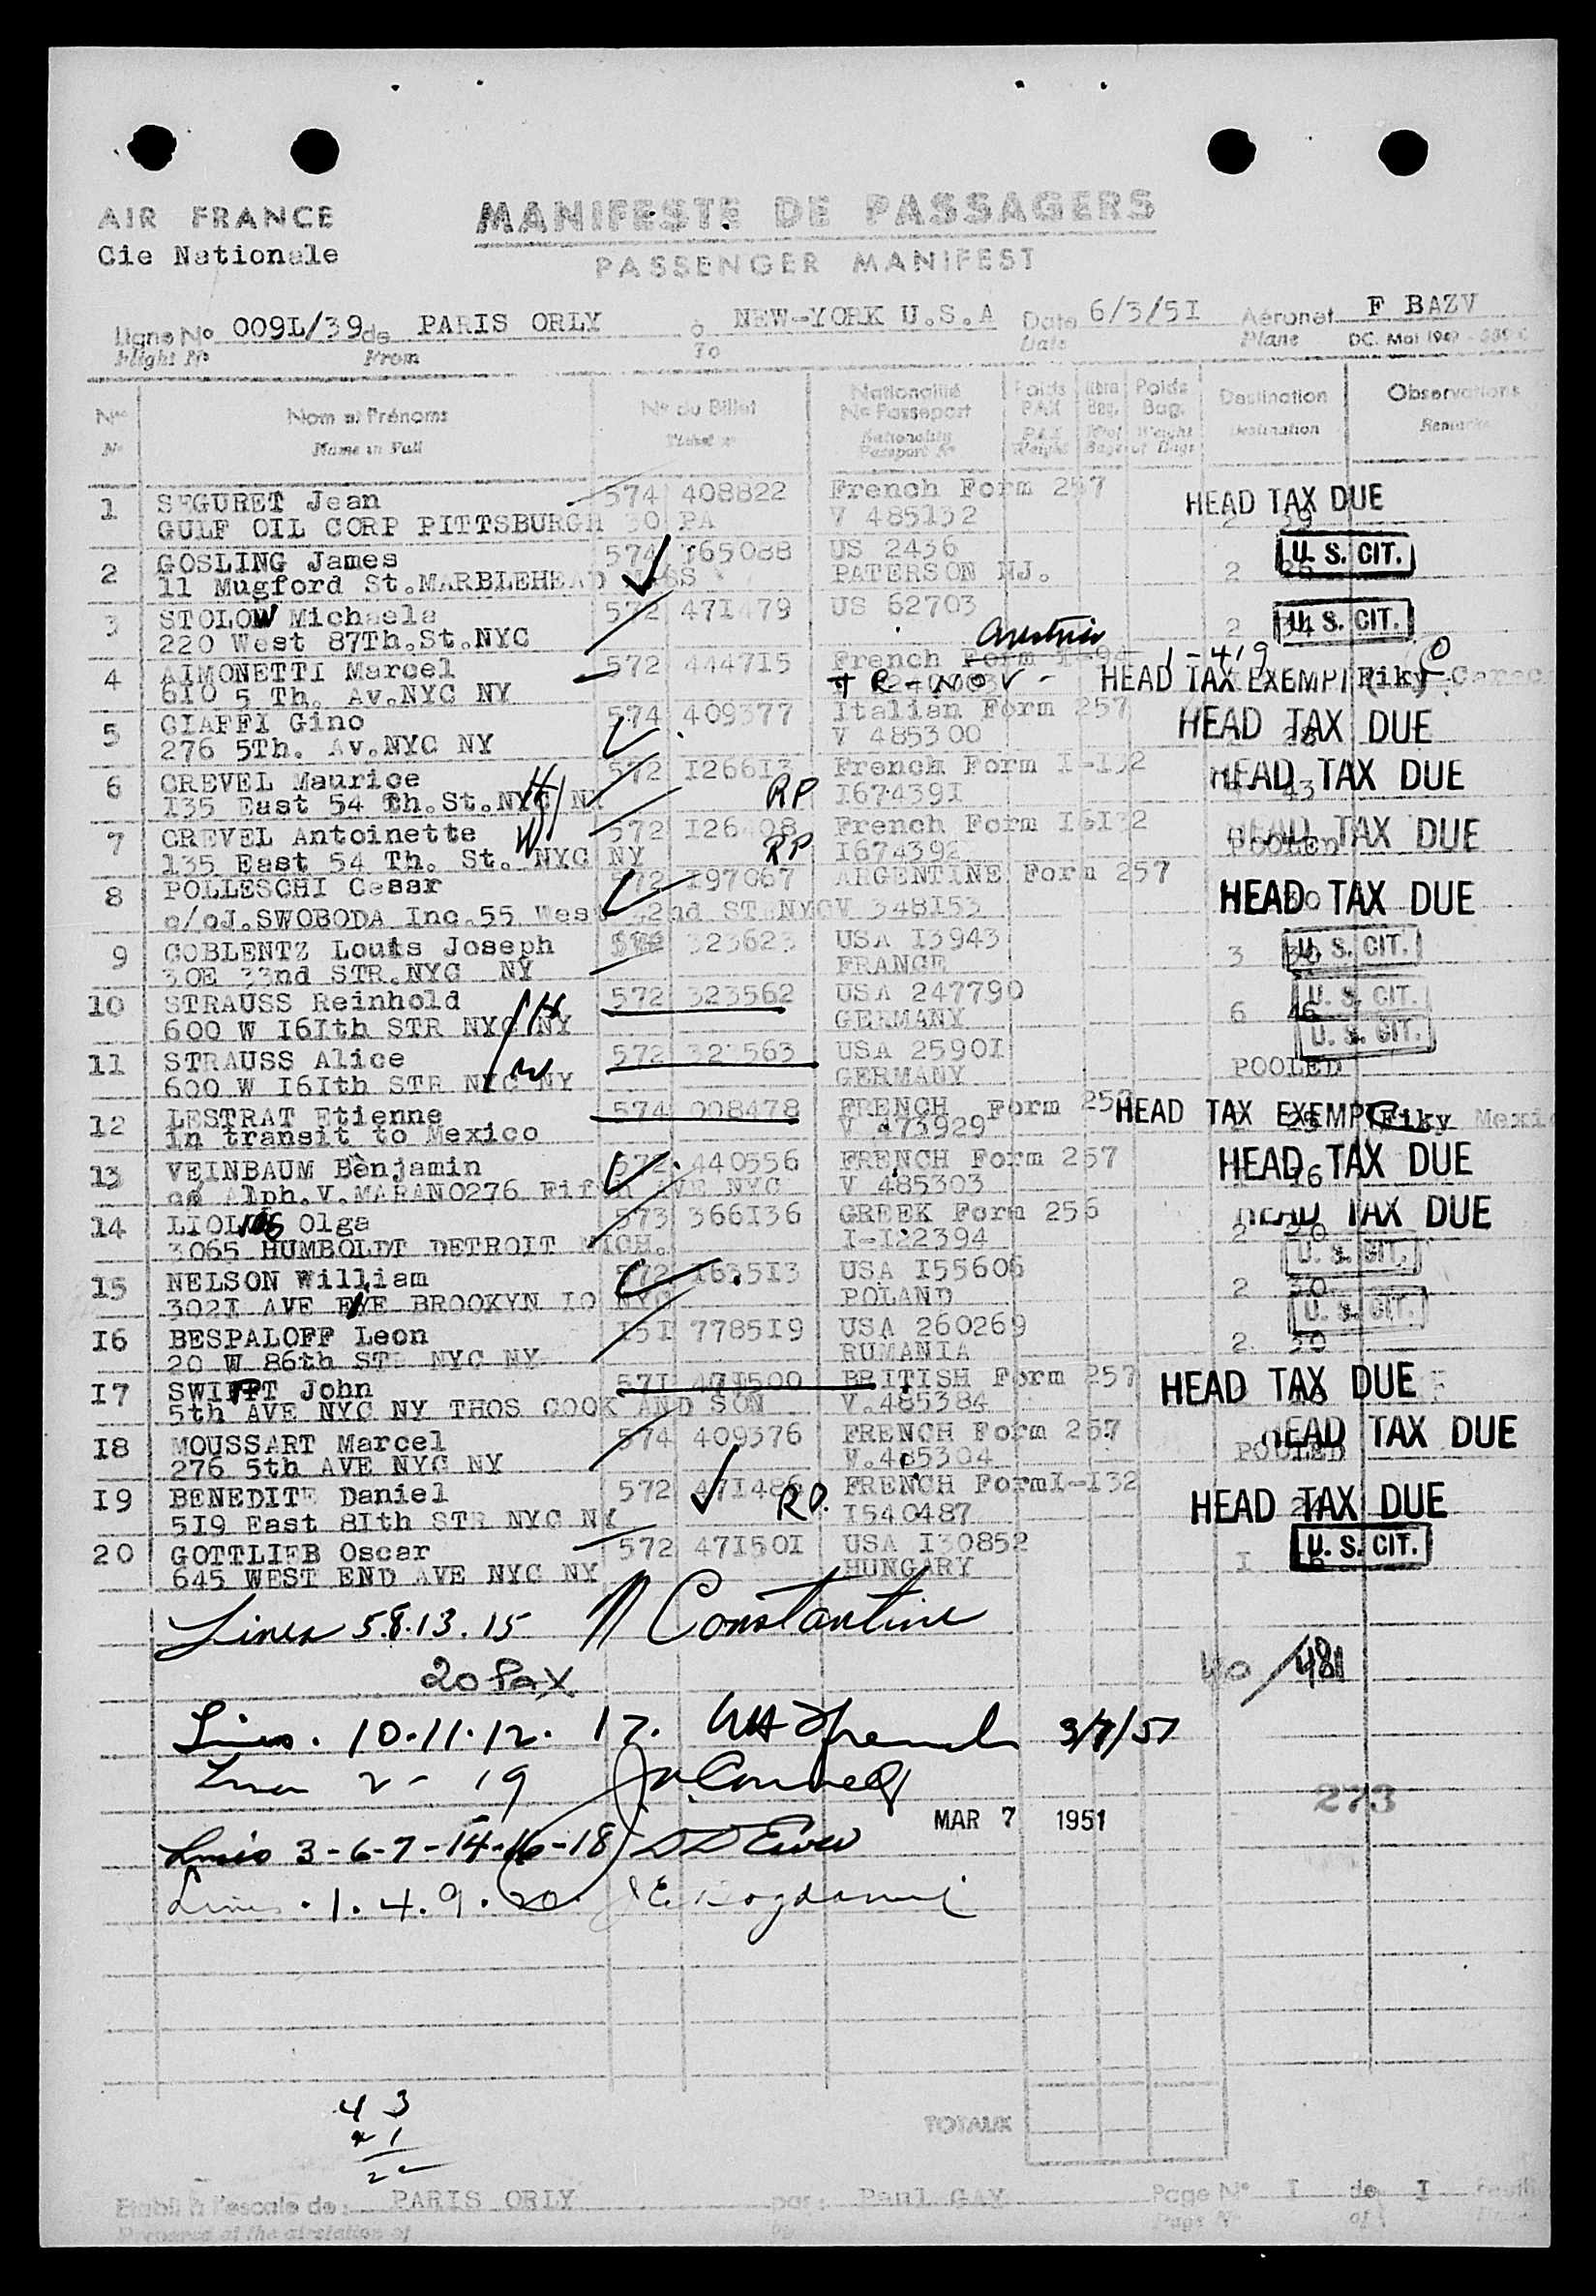 AIR FRANCE
Cie Nationale
MANIFESTE DE PASSAGERS
PASSENGER MANIFEST
Ligne No 009L/39 de PARIS ORLY à NEW-YORK U.S.A Date 6/3/5I Aéronef F BAZV
Flight No From To Date Plane DC. Mai 1949
Nos Nom et Prénoms No du Billet Nationalité No Passeport Poids PAX Nbre Bag. Poids Bag. Destination Observations
No Name in Full Ticket No Nationality Passport No PAX Weight Weight of Bags Destination Remarks
1 SEGURET Jean 574 408822 French Form 257 HEAD TAX DUE
GULF OIL CORP PITTSBURGH 30 PA V 485132 2 39
2 GOSLING James 574 I65088 US 2436 U. S. CIT.
11 Mugford St.MARBLEHEAD MASS PATERSON NJ. 2
3 STOLOW Michaela 572 471479 US 62703 U. S. CIT.
220 West 87Th.St.NYC 2 34
4 AIMONETTI Marcel 572 444715 French Form I-94 Austria 1-419
6I0 5 Th. Av.NYC NY HEAD TAX EXEMPT Fiky
5 CIAFFI Gino 574 409377 Italian Form 257 HEAD TAX DUE
276 5Th. Av.NYC NY V 485300
6 CREVEL Maurice H 572 I26613 French Form I-I32 HEAD TAX DUE
I35 East 54 Th.St.NYC NY RP I67439I 43
7 CREVEL Antoinette W 572 I26408 French Form I-I32 HEAD TAX DUE
135 East 54 Th. St. NYC NY RP I674392 POOLED
8 POLLESCHI Cesar 572 I97067 ARGENTINE Form 257 HEAD TAX DUE
c/oJ.SWOBODA Inc.55 West 42nd ST NYC V 348I53
9 COBLENTZ Louis Joseph 323623 USA I3943 U. S. CIT.
30E 33nd STR.NYC NY FRANCE 3 30
10 STRAUSS Reinhold H 572 323562 USA 247790 U. S. CIT.
600 W I6Ith STR NYC NY GERMANY 6 46
11 STRAUSS Alice W 572 323563 USA 2590I U. S. CIT.
600 W I6Ith STR NYC NY GERMANY POOLED
12 LESTRAT Etienne 574 008478 FRENCH Form 257 HEAD TAX EXEMPT Fiky Mexic
in transit to Mexico V 473929
13 VEINBAUM Benjamin 572 440556 FRENCH Form 257 HEAD TAX DUE
Alph.V.MARANO276 Fifth AVE NYC V 485303
14 Olga 573 366I36 GREEK Form 256 HEAD TAX DUE
3065 HUMBOLDT DETROIT MICH. I-I22394 2
15 NELSON William 572 I635I3 USA I55606 U. S. CIT.
302I AVE BROOKYN IO NYC POLAND 2 30
I6 BESPALOFF Leon I5I 7785I9 USA 260269 U. S. CIT.
20 W 86th STR NYC NY RUMANIA 2 30
I7 SWIFT John 57I 47I500 BRITISH Form 257 HEAD TAX DUE
5th AVE NYC NY THOS COOK AND SON V.485384
I8 MOUSSART Marcel 574 409376 FRENCH Form 257 HEAD TAX DUE
276 5th AVE NYC NY V.485304 POOLED
I9 BENEDITE Daniel 572 47I486 FRENCH FormI-I32 HEAD TAX DUE
5I9 East 8Ith STR NYC NY RP. I540487 24
20 GOTTLIEB Oscar 572 47I50I USA I30852 U. S. CIT.
645 WEST END AVE NYC NY HUNGARY I
Lines 5.8.13.15 N Constantine
40/481
20 Pax
Lines. 10.11.12. 17. French 3/7/51
Lines 2 - 19
MAR 7 1951
273
Lines 3-6-7-14-16-18
Lines. 1. 4. 9. 20.
4 3
2 1
TOTAUX
Etabli à l'escale de: PARIS ORLY par: Paul GAY Page No I de I
Prepared at the airstation of by Page No of